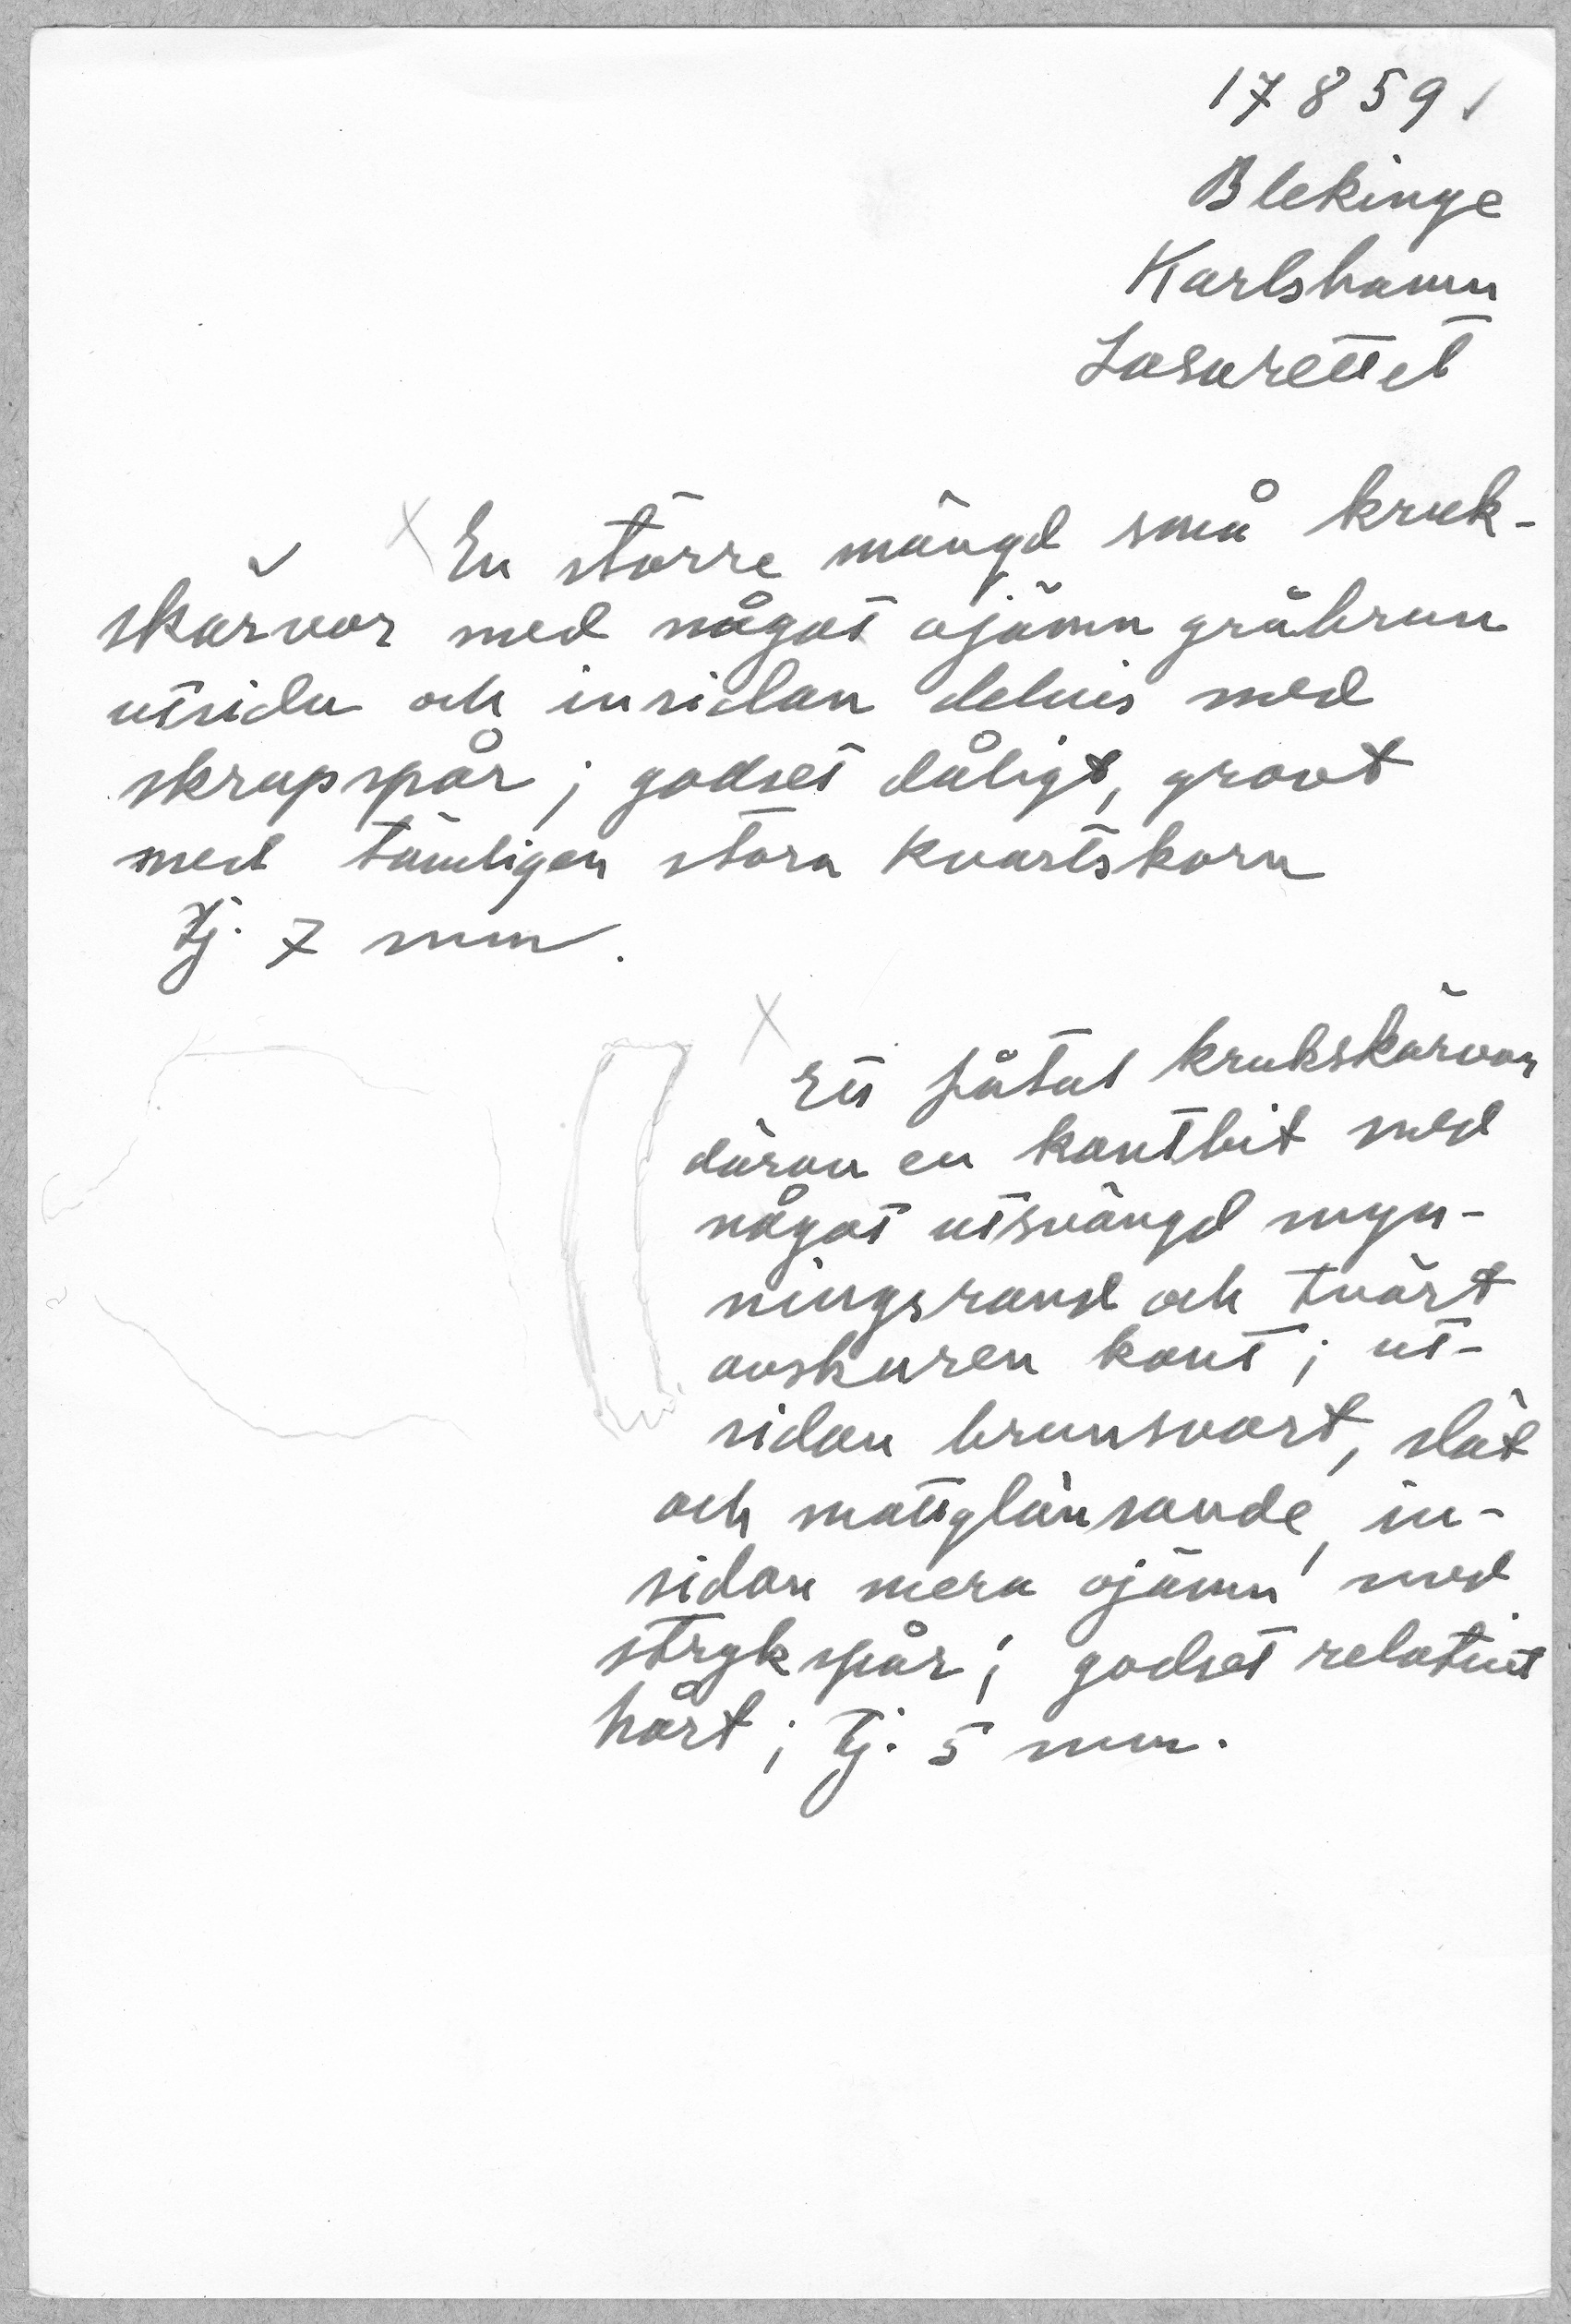 17859
Blekinge
Karlshamn
Lasarettet
En större mängd små kruk-
skärvor med något ojämn gråbrun
utsida och insidan delvis med
skrapspår; godset dåligt, grovt
med tämligen stora kvartskorn
Tj. 7 mm.
Ett fåtal krukskärvor
därav en kantbit med
något utsvängd myn-
ningsrand och tvärt
avskuren kant; ut-
sidan brunsvart, slät
och mattglänsande, in-
sidan mera ojämn med
strykspår; godset relativt
hårt; Tj. 5 mm.